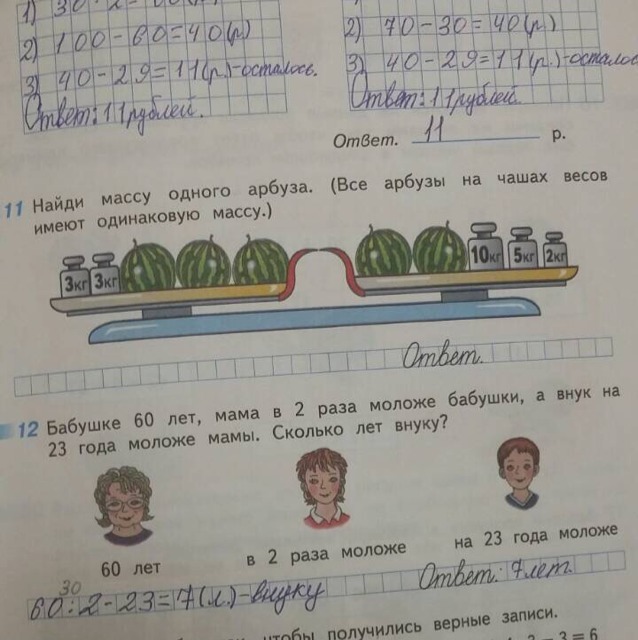 1) 30·2=60(р)
2) 100-60=40(р)
3) 40-29=11(р)-осталось.
Ответ: 11 рублей.
2) 70-30=40(р)
3) 40-29=11(р.)-осталос
Ответ: 11 рублей
Ответ. 11 р.
11 Найди массу одного арбуза. (Все арбузы на чашах весов
имеют одинаковую массу.)
3кг 3кг 10кг 5кг 2кг
Ответ.
12 Бабушке 60 лет, мама в 2 раза моложе бабушки, а внук на
23 года моложе мамы. Сколько лет внуку?
60 лет в 2 раза моложе на 23 года моложе
30
60:2-23=7(л.)-внуку Ответ: 7 лет.
чтобы получились верные записи.
3=6